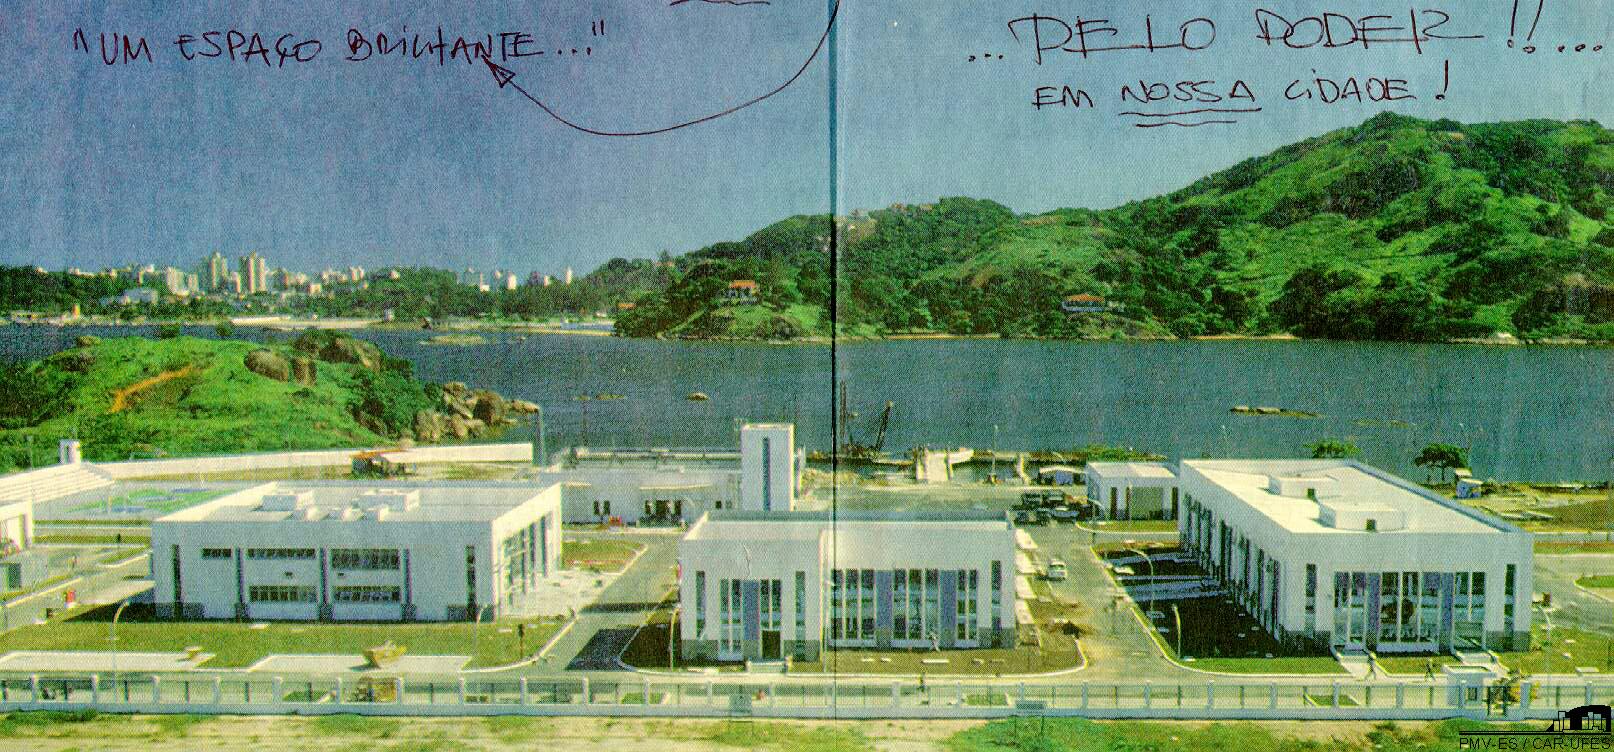 "UM ESPAÇO BRILHANTE..."
... PELO PODER!!...
EM NOSSA CIDADE!
PMV-ES / CAR-UFES